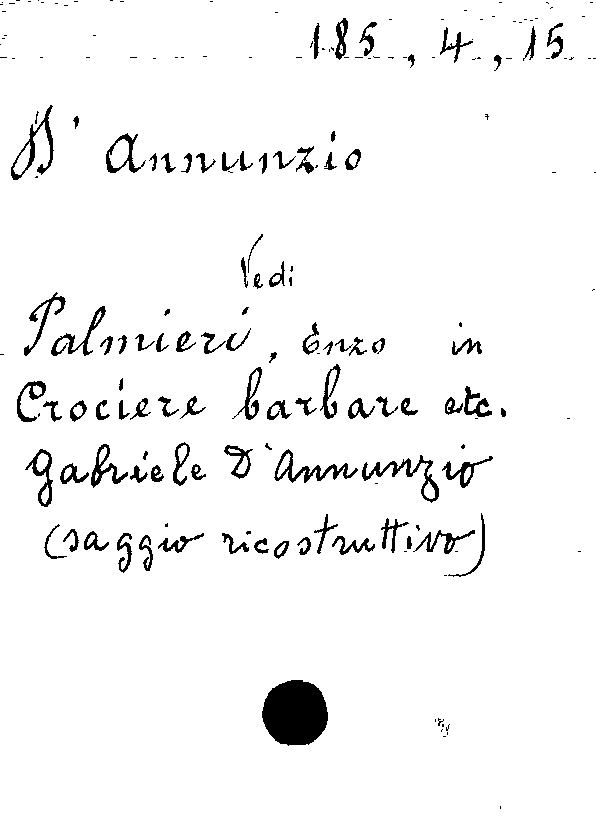 185, 4, 15
D' Annunzio
Vedi
Palmieri, Enzo in
Crociere barbare etc.
Gabriele D'Annunzio
(saggio ricostruttivo)